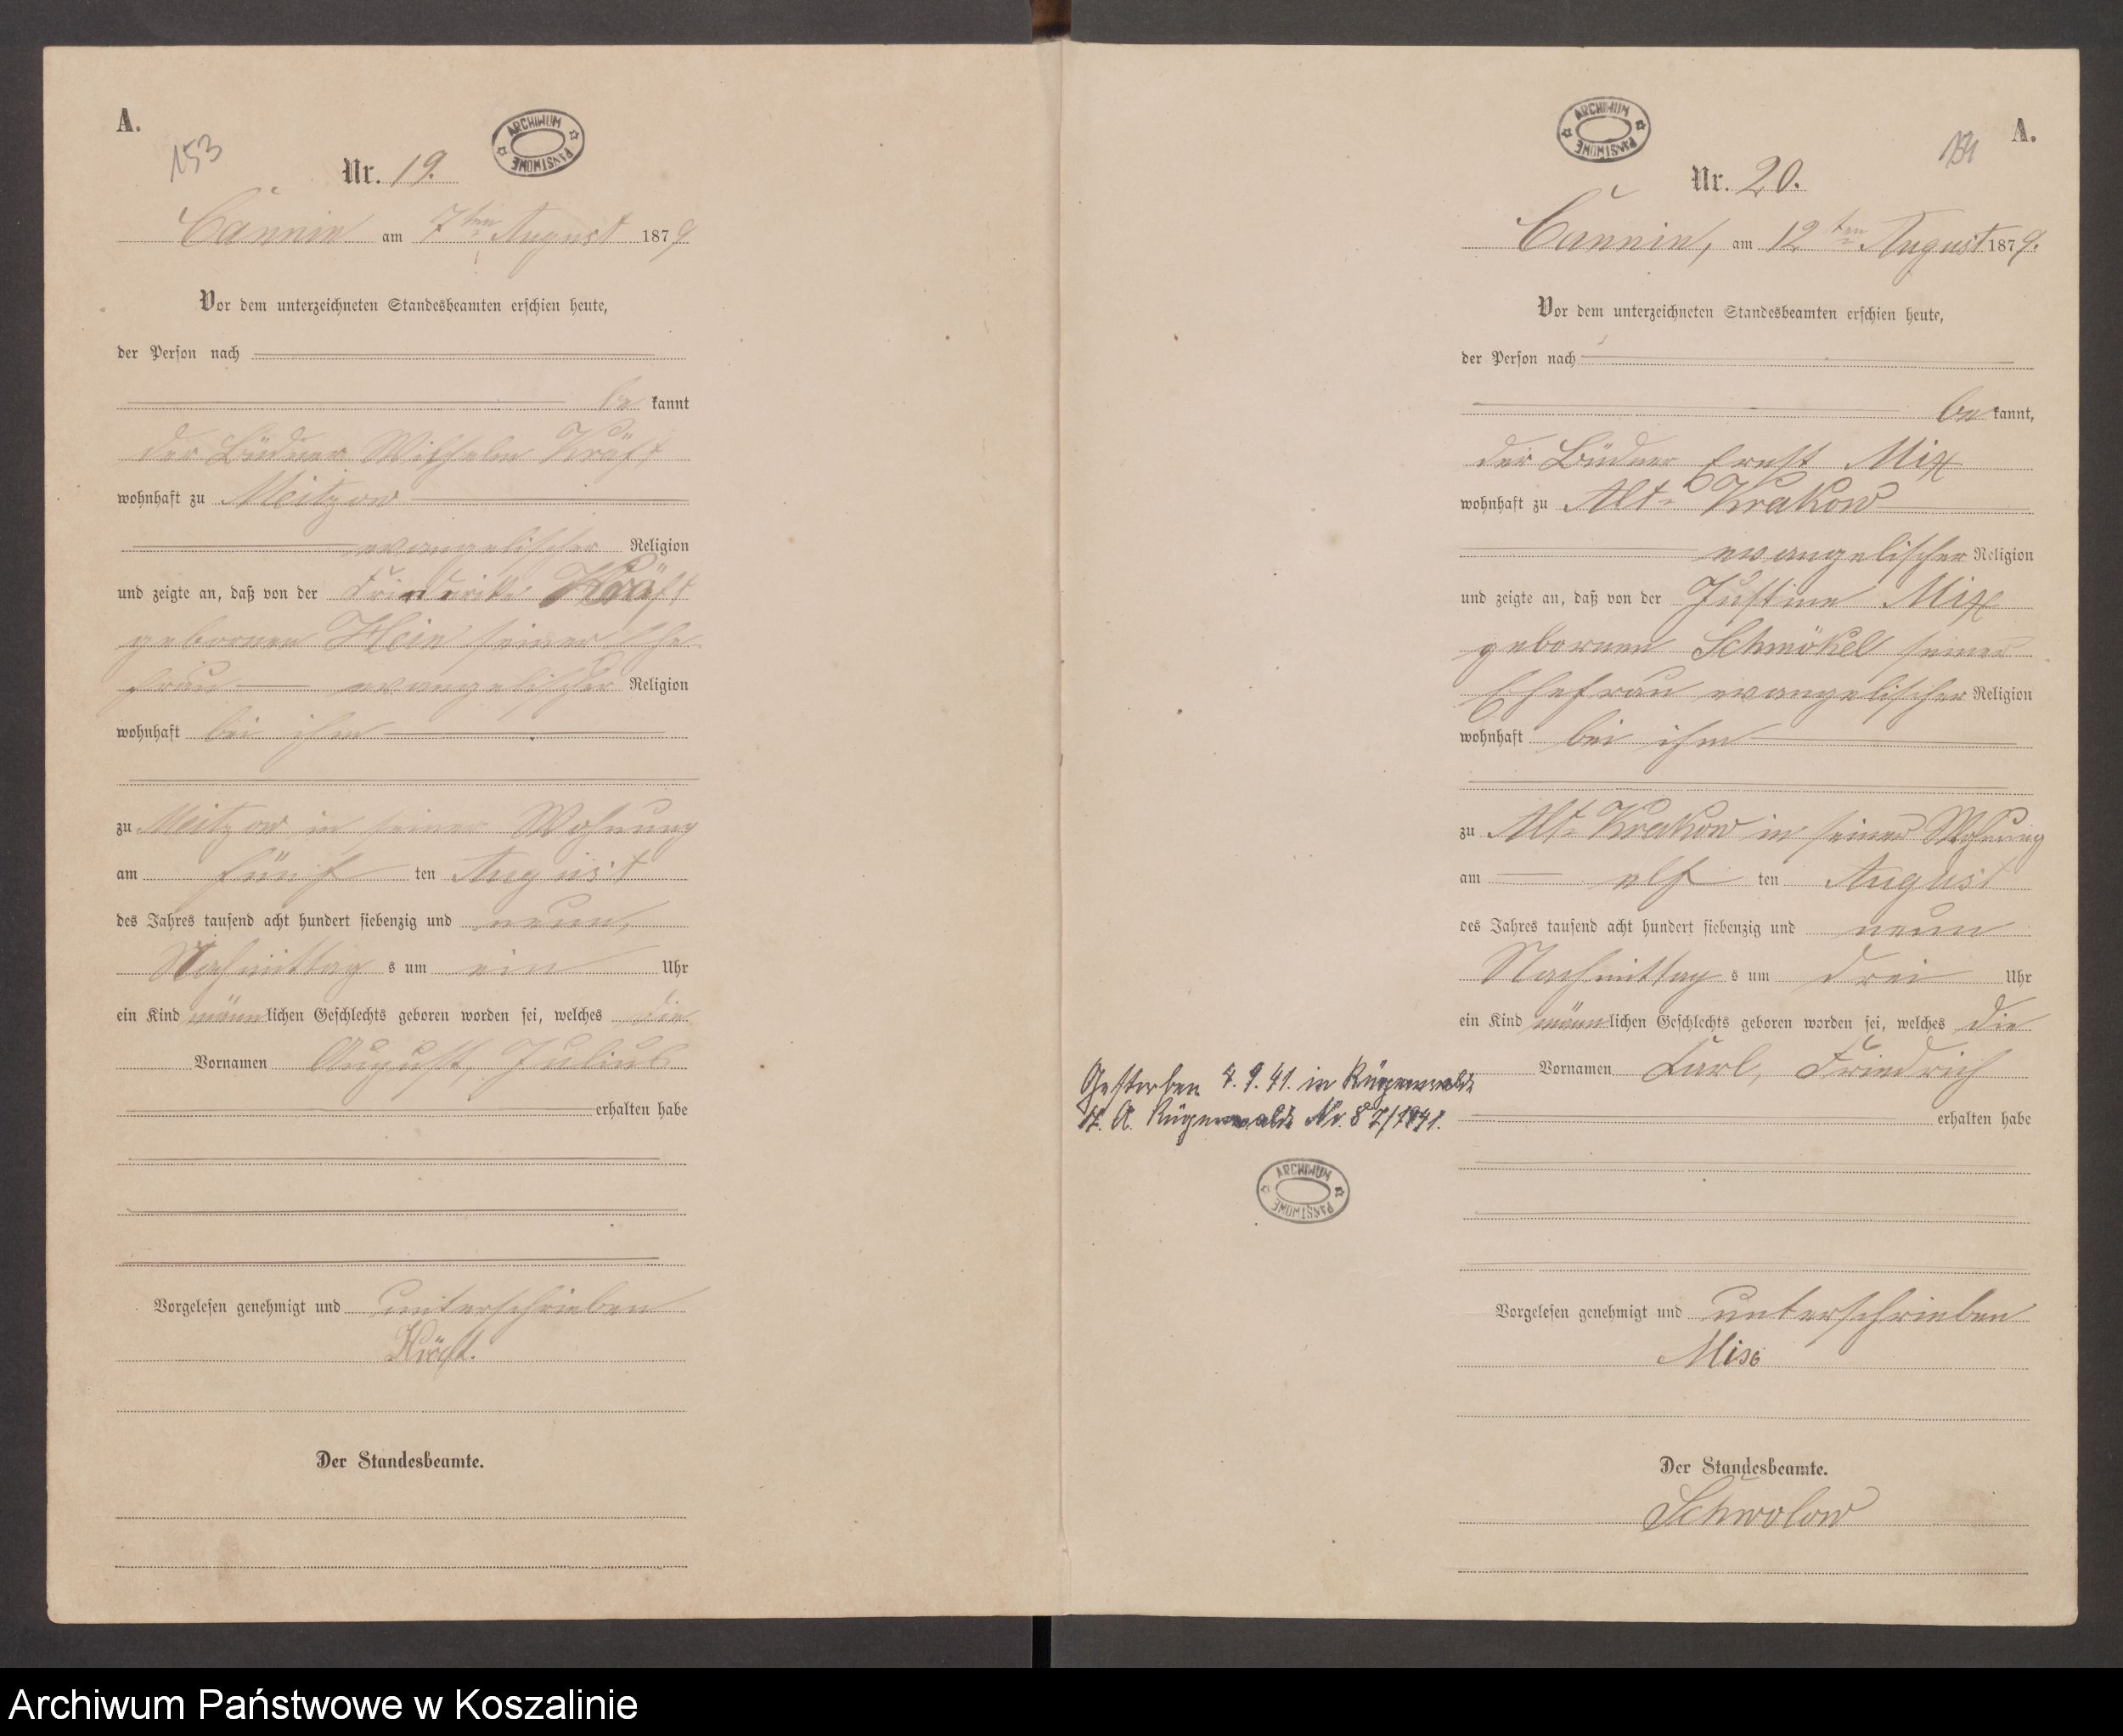 A.
153
Nr. 19.
ARCHIWUM PAŃSTWOWE
Cannin am 7ten August 1879
Vor dem unterzeichneten Standesbeamten erschien heute,
der Person nach
be kannt
der Büdner Wilhelm Kräft
wohnhaft zu Meitzow
evangelischer Religion
und zeigte an, daß von der Friederike Kräft
gebornen Klein seiner Ehe-
frau evangelischer Religion
wohnhaft bei ihm
zu Meitzow in seiner Wohnung
am fünf ten August
des Jahres tausend acht hundert siebenzig und neun,
Nachmittag s um ein Uhr
ein Kind männlichen Geschlechts geboren worden sei, welches die
Vornamen August, Julius
erhalten habe
Vorgelesen genehmigt und unterschrieben
Kräft.
Der Standesbeamte.
A.
154
ARCHIWUM PAŃSTWOWE
Nr. 20.
Cannin, am 12ten August 1879.
Vor dem unterzeichneten Standesbeamten erschien heute,
der Person nach
be kannt,
der Büdner Ernst Mix
wohnhaft zu Alt-Krakow
evangelischer Religion
und zeigte an, daß von der Justine Mix
gebornen Schmökel seiner
Ehefrau evangelischer Religion
wohnhaft bei ihm
zu Alt-Krakow in seiner Wohnung
am elf ten August
des Jahres tausend acht hundert siebenzig und neun
Nachmittag s um drei Uhr
ein Kind männlichen Geschlechts geboren worden sei, welches die
Vornamen Carl, Friedrich
erhalten habe
Gestorben 4.9.41. in Rügenwalde
St. A. Rügenwalde Nr. 87/1941.
ARCHIWUM PAŃSTWOWE
Vorgelesen genehmigt und unterschrieben
Mix
Der Standesbeamte.
Schwolow
Archiwum Państwowe w Koszalinie